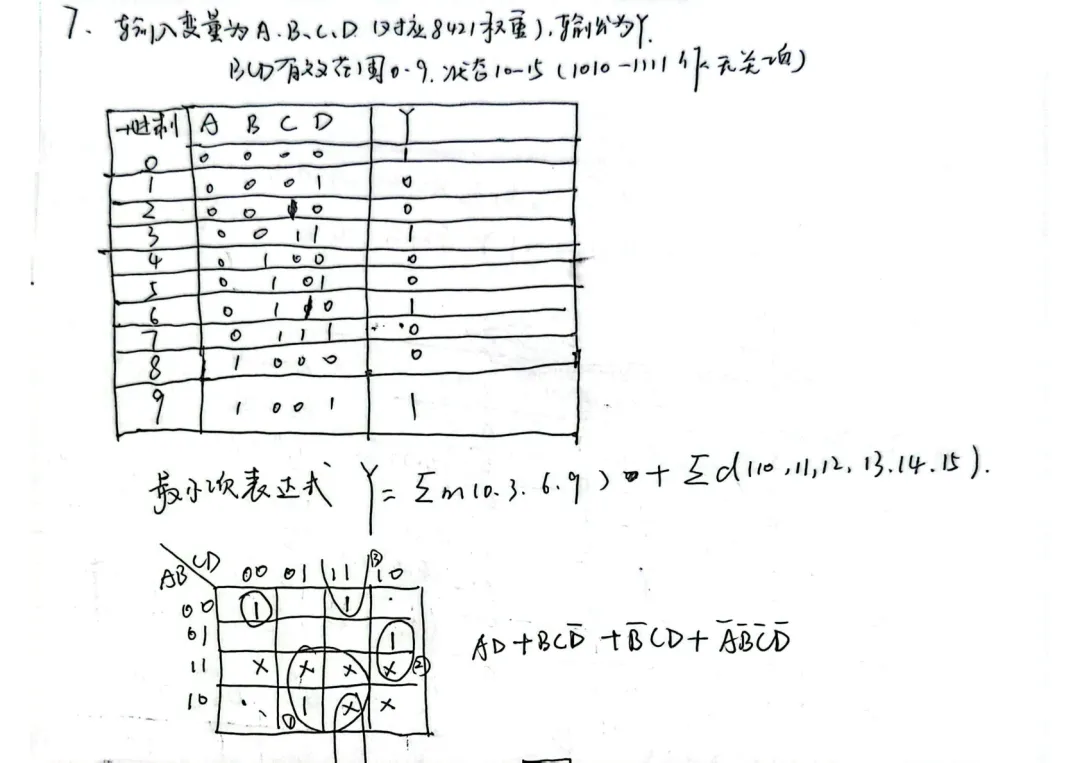 7、输入变量为A、B、C、D(对应8421权重),输出为Y.
BCD有效范围0-9.状态10-15(1010-1111作无关项)
十进制 A B C D Y
0 0 0 0 0 1
1 0 0 0 1 0
2 0 0 1 0 0
3 0 0 1 1 1
4 0 1 0 0 0
5 0 1 0 1 0
6 0 1 1 0 1
7 0 1 1 1 0
8 1 0 0 0 0
9 1 0 0 1 1
最小项表达式 Y=Σm(0.3.6.9)+Σd(10,11,12,13.14.15).
AB CD 00 01 11 ③ 10
00 1 1
01 1
11 × × × × ②
10 1 × ×
①
AD+BCD̅+B̅CD+A̅B̅C̅D̅